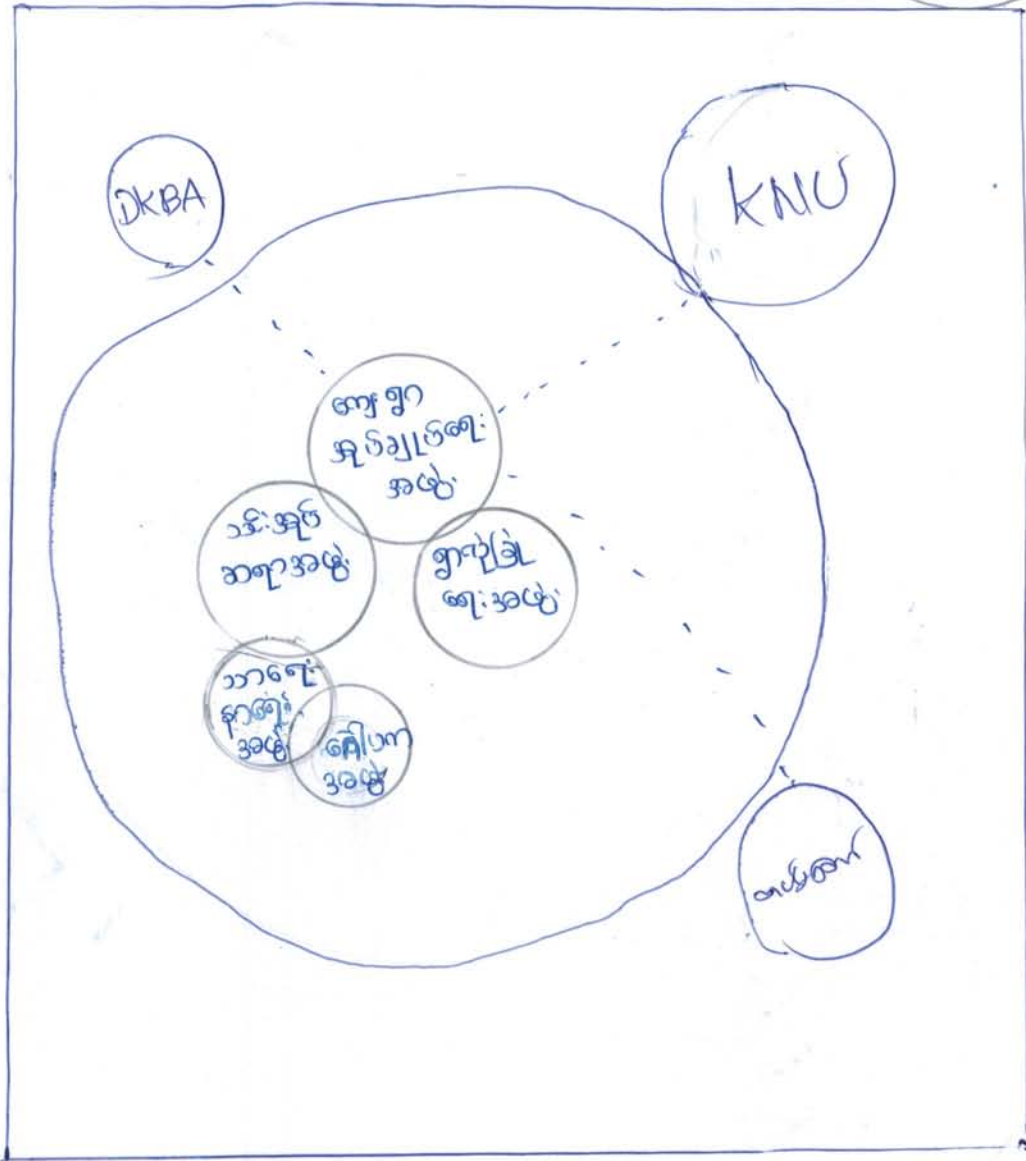 DKBA
KNU
ကျေးရွာ
အုပ်ချုပ်ရေး
အဖွဲ့
သင်းအုပ်
ဆရာအဖွဲ့
ရွာလုံခြုံ
ရေးအဖွဲ့
သာရေး
နာရေး
အဖွဲ့
အဖွဲ့
တပ်မတော်